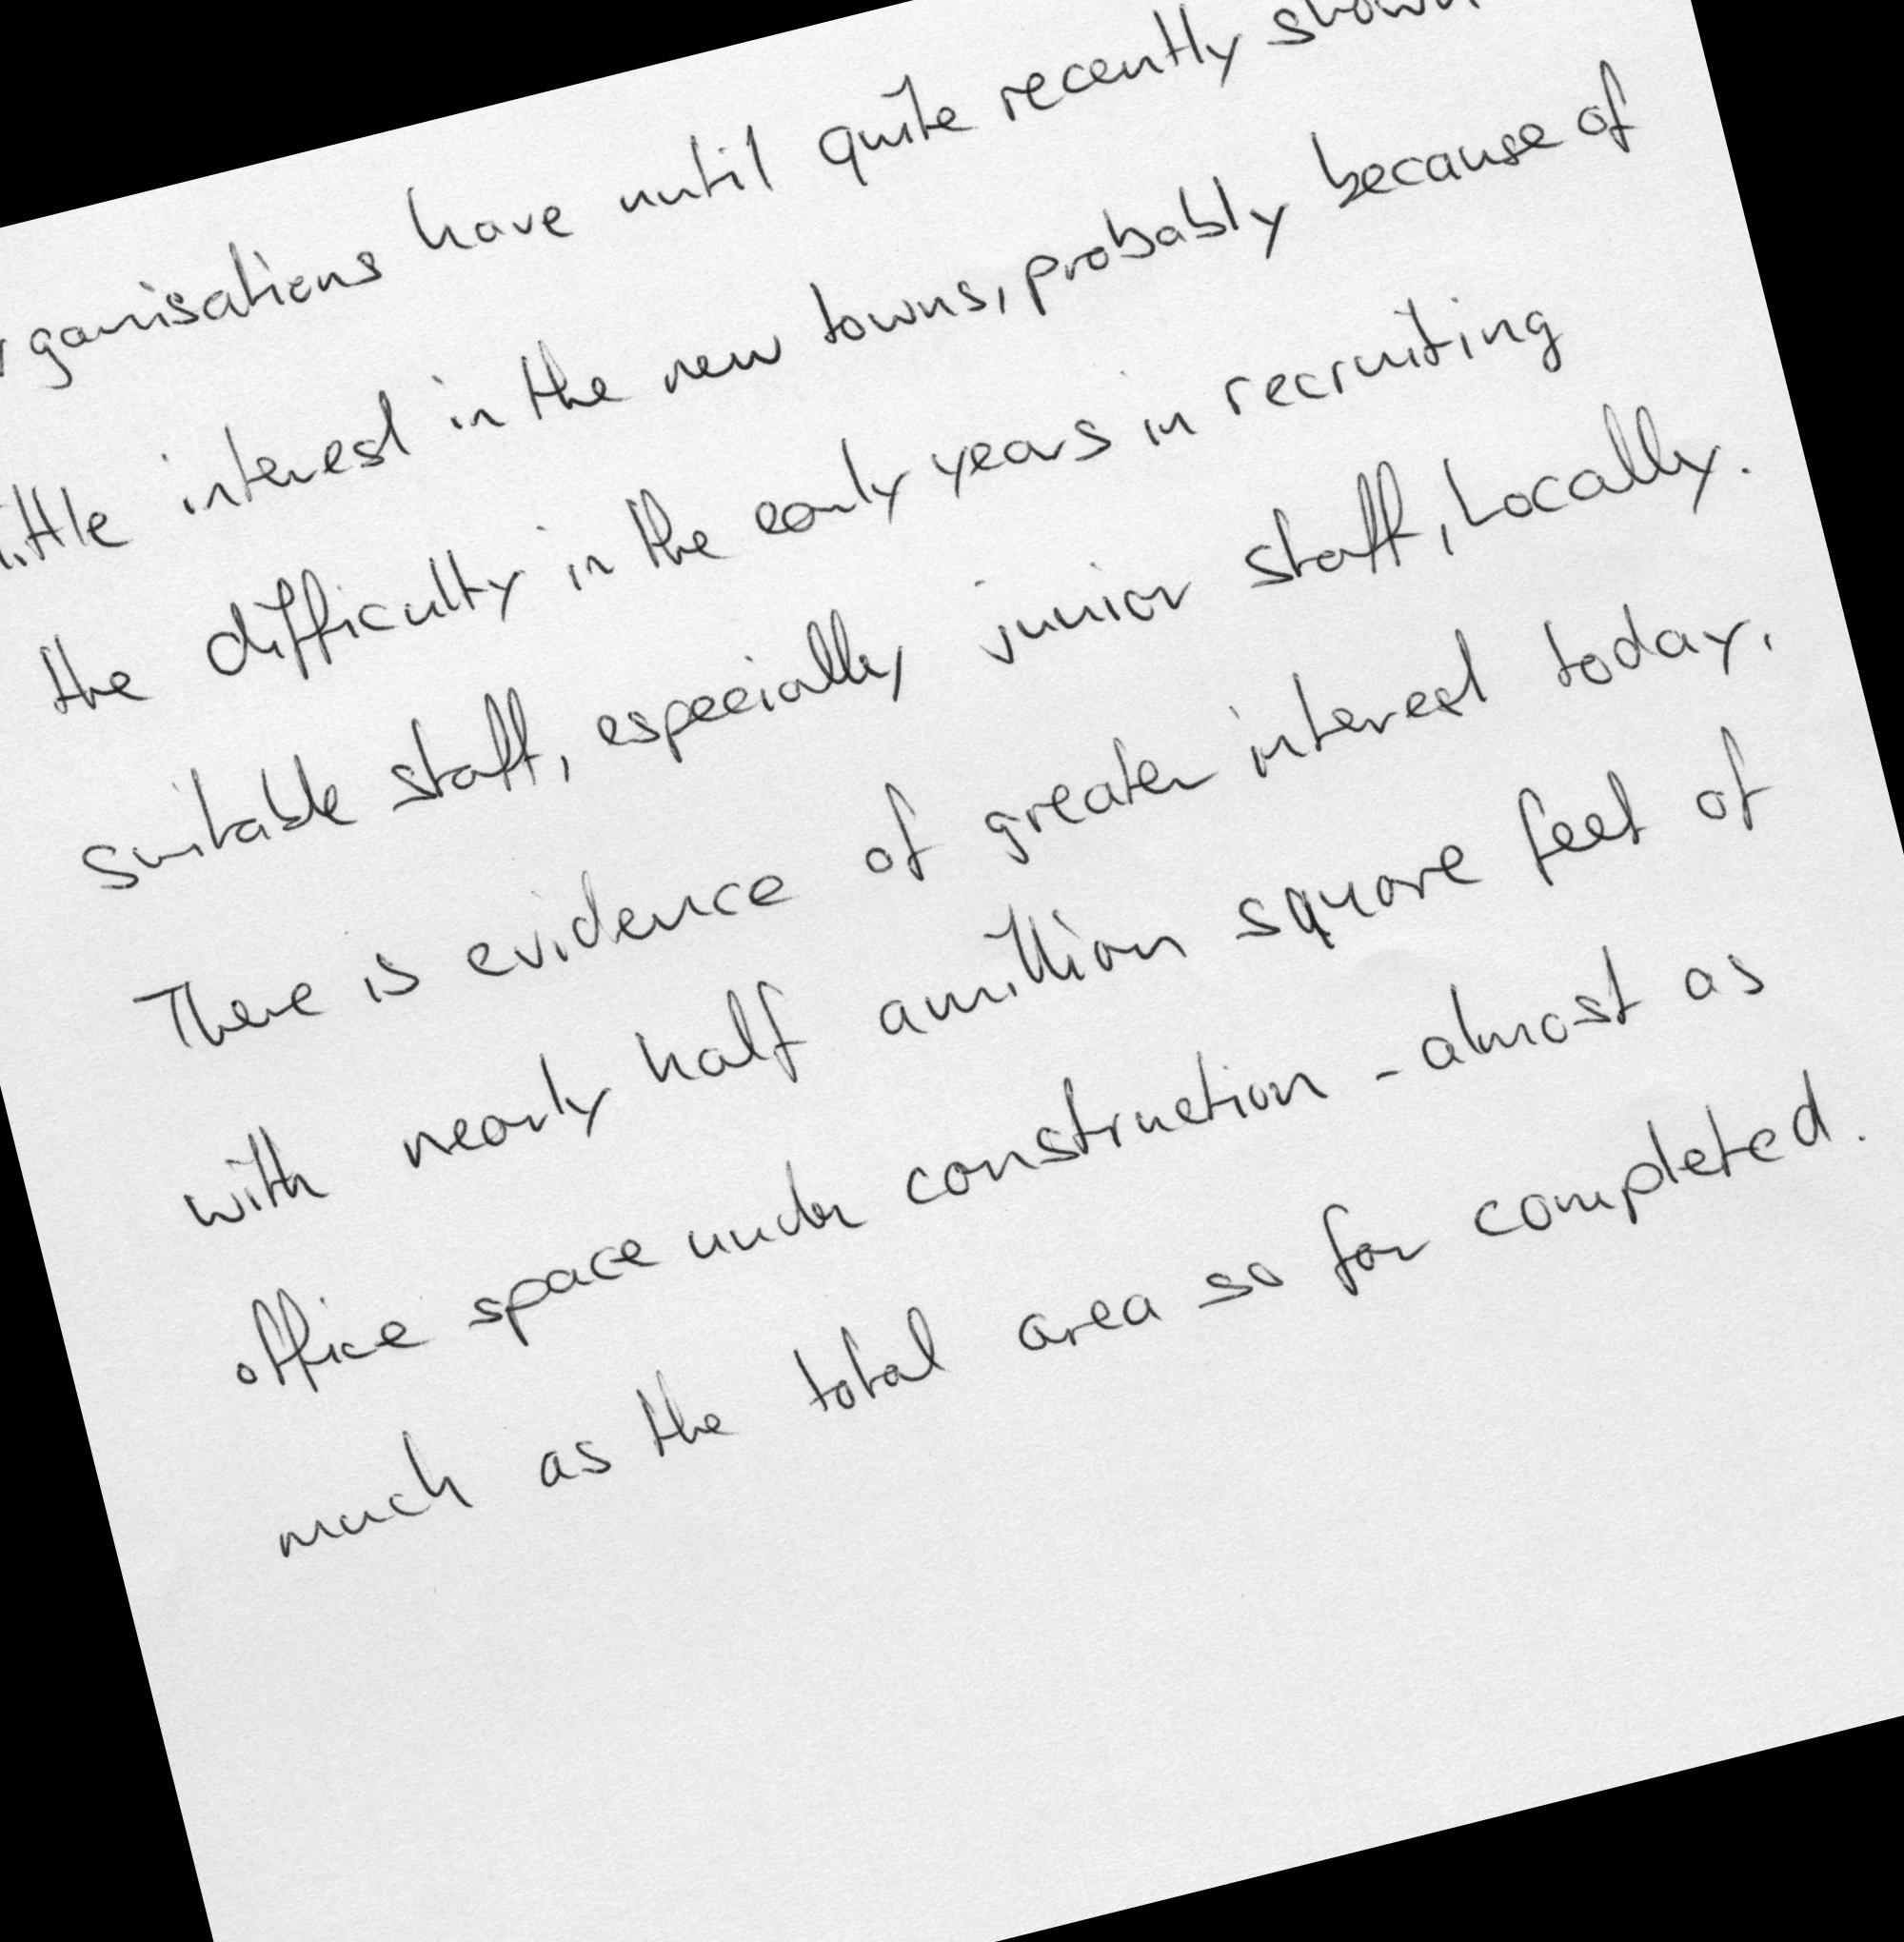 organisations have until quite recently shown
little interest in the new towns, probably because of
the difficulty in the early years in recruiting
suitable staff, especially junior staff, locally.
There is evidence of greater interest today,
with nearly half a million square feet of
office space under construction - almost as
much as the total area so far completed.